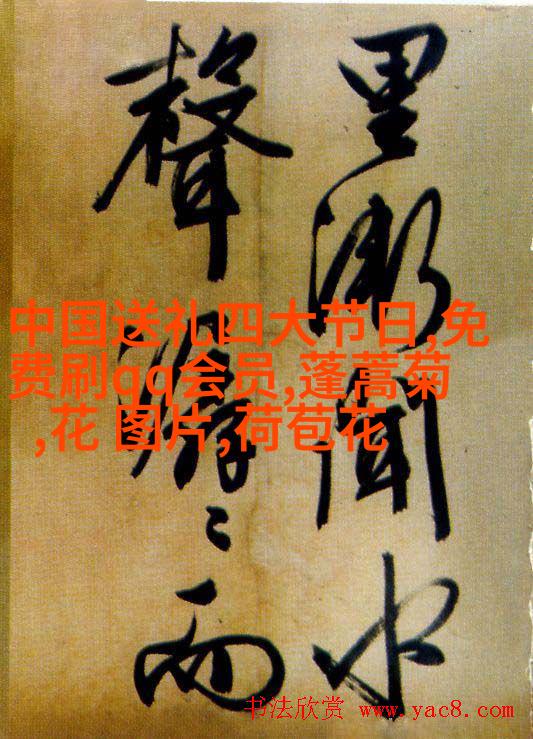 里漸聞水
聲潺〻而
中国送礼四大节日,免
费刷qq会员,蓬蒿菊
,花 图片,荷苞花
书法欣赏 www.yac8.com